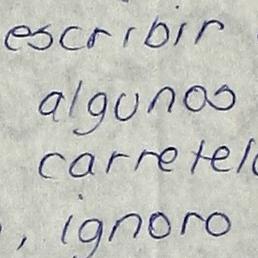 escribir
algunos
carretel
, ignoro